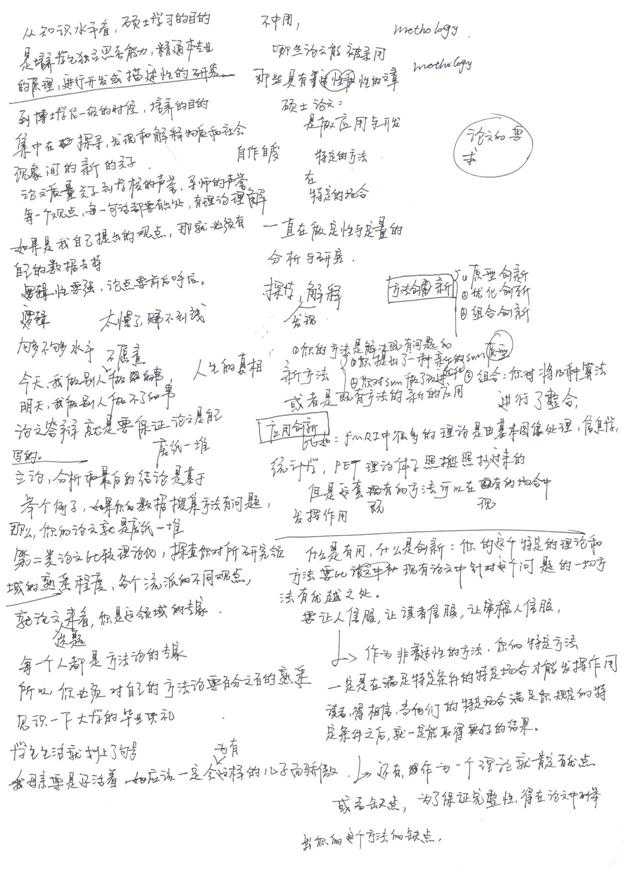 从知识水平看，硕士学习的目的
是培养学生独立思考能力，精通本专业
的原理，进行开发或描述性的研究。
到博士学位一级的时候，培养的目的
集中在探寻，发现和解释物质和社会
现象间的新的关系
论文质量关系到学校的声誉，导师的声誉
每一个观点，每一句话都要有出处，有理论理解
如果是我自己提出的观点，那就必须有
自己的数据支持
逻辑性要强，论点要前后呼应。
逻辑 太懒了赚不到钱
够不够水平 不怎
今天，我做别人不做的事
明天，我做别人做不了的事
人生的真相
论文答辩就是要保证论文是自己
写的。 废纸一堆
立论，分析和最后的结论是基于
举个例子，如果你的数据搜集方法有问题，
那么，你的论文就是废纸一堆
第二类论文比较理论化，探查你对所研究领
域的熟悉程度，各个流派的不同观点，
就论文来看，你是这领域的专家
选题
每一个人都是方法论的专家
所以，你必须对自己的方法论要百分之百的熟悉
见识一下大学的毕业典礼
学生生活就划上了句号
母亲要是还活着 她应该一定会为有这样的儿子而骄傲
不中用，
methology
哪些论文能被采用
methology
那些具有性的文章
硕士论文：
是做应用与开发
论文的要
求
自作自受
特定的方法
在
特定的场合
一直在做定性与定量的
分析与研究
探寻，解释
发现
方法创新
① 原理创新
② 优化创新
③ 组合创新
①你的方法是解决现有问题的
新方法
①你提出了一种新的svm原理
②你对svm做了改进
③组合：你对将几种算法
进行了整合，
或者是既有方法的新的应用
应用创新
比如：fMRI中很多的理论是由基本图像处理，信息论，
统计学，PET理论体系照搬照抄过来的
但是这套既有的方法可以在既有的场合中
发挥作用
什么是有用，什么是创新：你的这个特定的理论和
方法要比现有论文中针对这个问题的一切方
法有优越之处。
要让人信服，让读者信服，让审稿人信服，
作为非概括性的方法，你的特定方法
一定是在满足特定条件的特定场合才能发挥作用
读者得相信，当他们的特定场合满足你规定的特
定条件之后，就一定能取得更好的结果。
还有，作为一个理论就一定有优点
或者缺点，为了保证完整性，得在论文中列举
出你的这个方法的缺点。